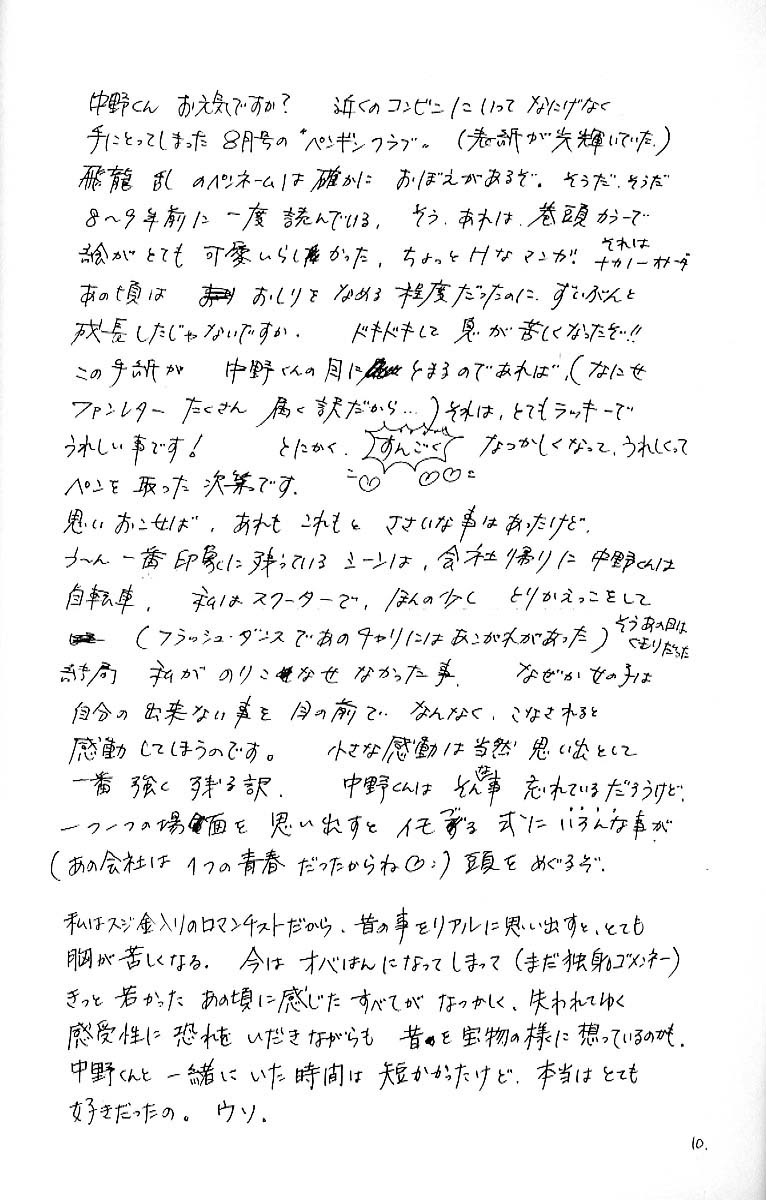 中野くん お元気ですか? 近くのコンビニにいって なにげなく
手にとってしまった 8月号の "ペンギンクラブ" (表紙が光輝いていた。)
飛龍 乱 のペンネームは 確かに おぼえがあるぞ。そうだ、そうだ
8〜9年前に 一度 読んでいる。 そう、あれは、巻頭カラーで
絵がとても 可愛いらしかった、ちょっとHなマンガ。それは
ナカノーオーダ
あの頃は おしりを なめる 程度だったのに、ずいぶんと
成長したじゃないですか。 ドキドキして 息が苦しくなったぞ!!
この手紙が 中野くんの目に とまるのであれば、(なにせ
ファンレター たくさん 届く訳だから…) それは、とてもラッキーで
うれしい事です! とにかく、すんごく なつかしくなって、うれしくって
ペンを 取った 次第です。
思いおこせば、あれも これもと ささいな事はあったけど、
う〜ん 一番 印象に残っている シーンは、会社帰りに 中野くんは
自転車、 私はスクーターで、ほんの少し とりかえっこをして
(フラッシュ・ダンスであのチャリにはあこがれがあった) そうあの日は
くもりだった
結局 私が のりこなせ なかった事。 なぜか女の子は
自分の 出来ない事を 目の前で なんなく、こなされると
感動してしまうのです。 小さな感動は当然 思い出として
一番 強く 残る訳。 中野くんは そんな事 忘れているだろうけど、
一つ一つの場面を 思い出すと イモづる 式に いろんな事が
(あの会社は 1つの青春 だったからね♡:) 頭を めぐるぞ。
私はスジ金入りのロマンチストだから、昔の事をリアルに思い出すと、とても
胸が苦しくなる。 今は オバはんになってしまって (まだ独身。ゴメンネー)
きっと 若かった あの頃に感じた すべてが なつかしく、失われてゆく
感受性に 恐れを いだきながらも 昔を 宝物の様に 想っているのかも。
中野くんと 一緒に いた時間は 短かかったけど、本当は とても
好きだったの。 ウソ。
10.